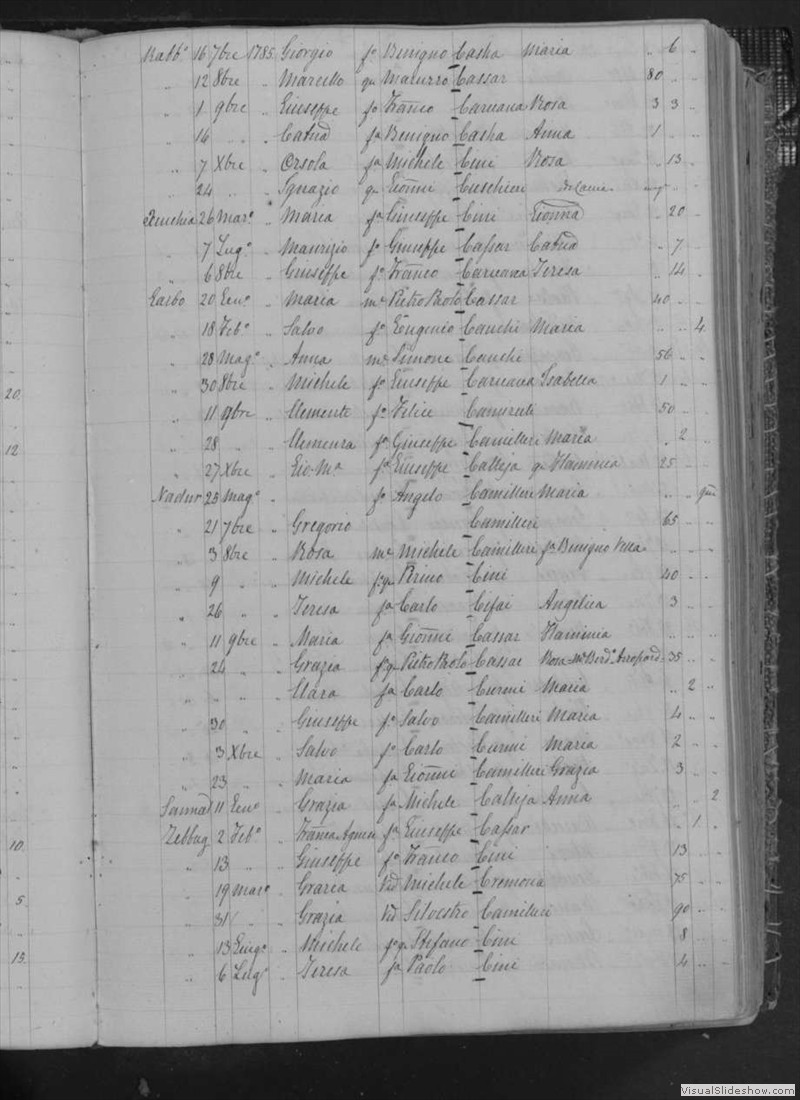 Rabb.o 16 7bre 1785 Giorgio fo Benigno Casha Maria .. 6 ..
.. 12 8bre .. Marcello qm Cassar 80 .. ..
.. 1 9bre .. Giuseppe fo Franco Caruana Rosa 3 3 ..
.. 16 .. .. Catnd fa Benigno Casha Anna 1 .. ..
.. 7 Xbre .. Orsola fa Michele Cini Rosa .. 13
.. 24 .. .. Ignazio qm Gionni Cuschieri
Xeuchia 26 Mar.o .. Maria fa Giuseppe Cini Gionna .. 20
.. 7 Lug.o .. Maurizio fo Giuseppe Cassar Catnd .. 7
.. 6 8bre .. Giuseppe fo Franco Caruana Teresa .. 14
Garbo 20 Gen.o .. Maria me Pietro Paolo Cassar 40 .. ..
.. 18 Feb.o .. Salvo fo Eugenio Cauchi Maria .. .. 4
.. 28 Mag.o .. Anna me Simone Cauchi 56 .. ..
.. 30 8bre .. Michele fo Giuseppe Caruana Isabella 1 .. ..
.. 11 9bre .. Clemente fo Felice 50 .. ..
.. 28 .. .. fa Giuseppe Camilleri Maria .. 2
.. 27 Xbre .. Gio. Ma fa Giuseppe Calleja qm Flaminia 25 .. ..
Nadur 25 Mag.o .. fo Angelo Camilleri Maria
.. 21 7bre .. Gregorio Camilleri 65 .. ..
.. 3 8bre .. Rosa me Michele Camilleri fa Benigno Vella .. .. ..
.. 9 .. .. Michele Cini 40 .. ..
.. 26 .. .. Teresa fa Carlo Cefai Angelica 3 .. ..
.. 11 9bre .. Maria fa Gionni Cassar Flaminia .. .. ..
.. 24 .. .. Grazia Pietro Paolo Cassar Rosa 35 .. ..
.. .. .. .. Clara fa Carlo Curmi Maria .. 2 ..
.. 30 .. .. Giuseppe fo Salvo Camilleri Maria 4 .. ..
.. 3 Xbre .. Salvo fo Carlo Curmi Maria 2 .. ..
.. 23 .. .. Maria fa Gionni Camilleri Grazia 3 .. ..
Sannat 11 Gen.o .. Grazia fa Michele Calleja Anna .. .. 2
Zebbug 2 Feb.o .. Franca Agnese fa Giuseppe Cassar .. 1 ..
.. 13 .. .. Giuseppe fo Franco Cini 13 .. ..
.. 19 Mar.o .. Grazia Vid Michele Cremona 75 .. ..
.. 31 .. .. Grazia Vid Silvestro Camilleri 90 .. ..
.. 13 Giug.o .. Michele Stefano Cini 8 .. ..
.. 6 Lug.o .. Teresa fa Paolo Cini 4 .. ..
20.
12.
10.
5.
13.
VisualSlideshow.com